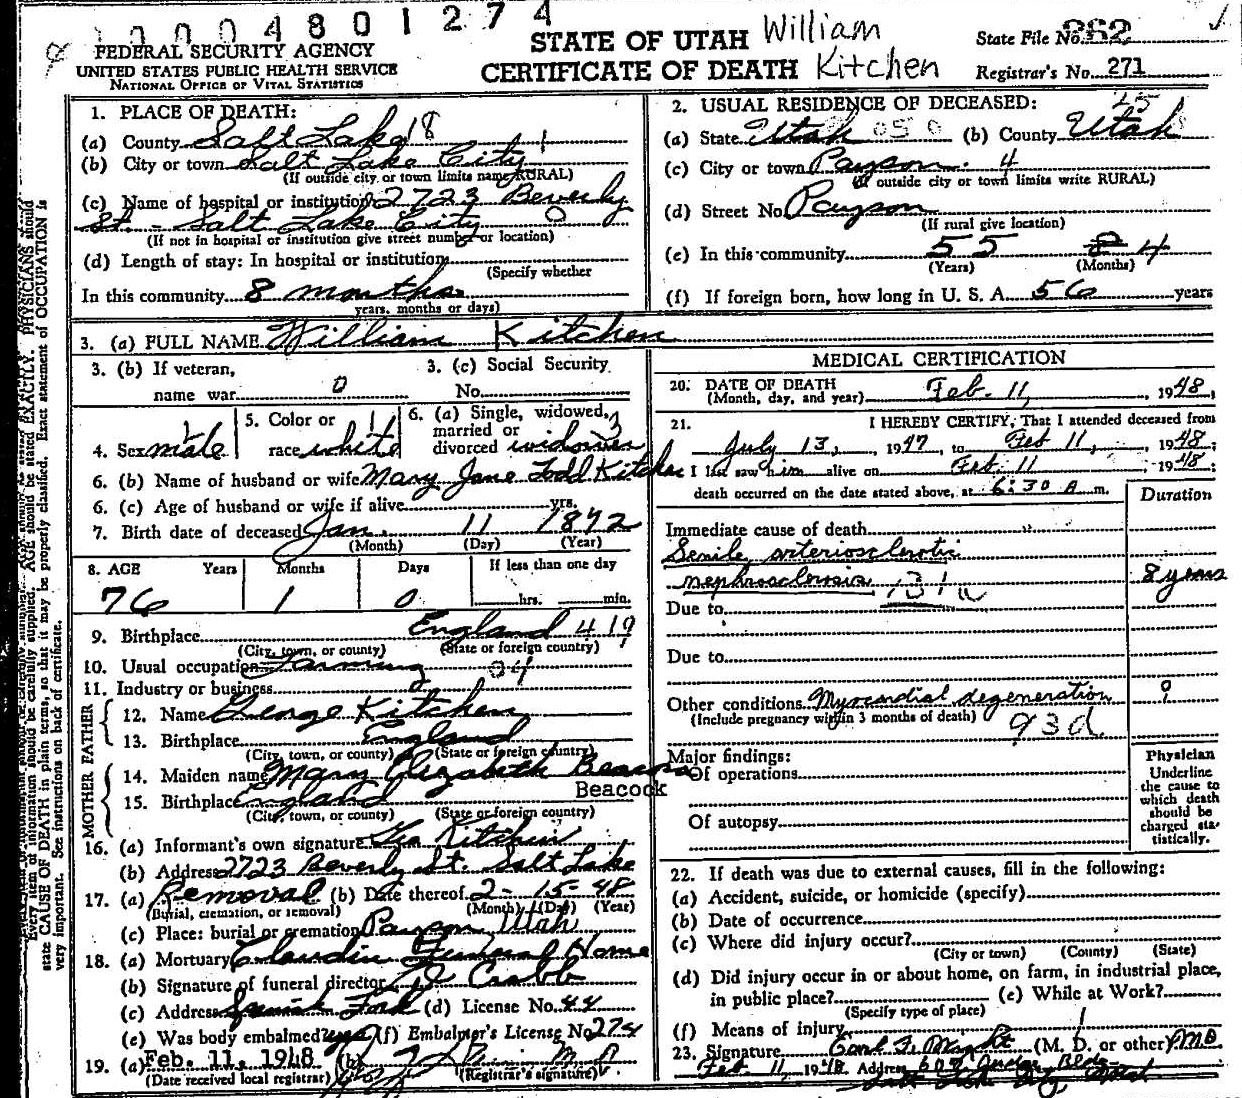 0004801274
FEDERAL SECURITY AGENCY
UNITED STATES PUBLIC HEALTH SERVICE
NATIONAL OFFICE OF VITAL STATISTICS
STATE OF UTAH
CERTIFICATE OF DEATH
William
Kitchen
State File No. 862
Registrar's No. 271
1. PLACE OF DEATH:
(a) County Salt Lake 18
(b) City or town Salt Lake City 1
(If outside city or town limits name RURAL)
(c) Name of hospital or institution 2723 Beverly
St. - Salt Lake City 0
(If not in hospital or institution give street number or location)
(d) Length of stay: In hospital or institution
(Specify whether
In this community 8 months
years, months or days)
2. USUAL RESIDENCE OF DECEASED: 25
(a) State Utah 050 (b) County Utah
(c) City or town Payson. 4
(If outside city or town limits write RURAL)
(d) Street No. Payson
(If rural give location)
(e) In this community 55 4
(Years) (Months)
(f) If foreign born, how long in U. S. A. 56 years
3. (a) FULL NAME William Kitchen
3. (b) If veteran,
name war 0
3. (c) Social Security
No.
4. Sex male
5. Color or
race white
6. (a) Single, widowed,
married or
divorced widower
6. (b) Name of husband or wife Mary Jane Todd Kitchen
6. (c) Age of husband or wife if alive yrs.
7. Birth date of deceased Jan. 11 1872
(Month) (Day) (Year)
8. AGE Years Months Days If less than one day
76 1 0 hrs. min.
9. Birthplace England 419
(City, town, or county) (State or foreign country)
10. Usual occupation Farming 04
11. Industry or business
FATHER
12. Name George Kitchen
13. Birthplace England
(City, town, or county) (State or foreign country)
MOTHER
14. Maiden name Mary Elizabeth
Beacock
15. Birthplace England
(City, town, or county) (State or foreign country)
16. (a) Informant's own signature Geo Kitchen
(b) Address 2723 Beverly St. Salt Lake
17. (a) Removal (b) Date thereof 2-15-48
(Burial, cremation, or removal) (Month) (Day) (Year)
(c) Place: burial or cremation Payson, Utah
18. (a) Mortuary Claudin Funeral Home
(b) Signature of funeral director
(c) Address Spanish Fork (d) License No. 44
(e) Was body embalmed? yes (f) Embalmer's License No. 274
19. (a) Feb. 11, 1948 (b)
(Date received local registrar) (Registrar's signature)
MEDICAL CERTIFICATION
20. DATE OF DEATH
(Month, day, and year) Feb. 11, 1948,
21. I HEREBY CERTIFY, That I attended deceased from
July 13, 1947, to Feb 11, 1948;
I last saw him alive on Feb 11 1948;
death occurred on the date stated above, at 6:30 A m.
Duration
Immediate cause of death
Senile arteriosclerotic
nephrosclerosis 131a 8 years
Due to
Due to
Other conditions Myocardial degeneration ?
(Include pregnancy within 3 months of death) 93d
Major findings:
Of operations
Of autopsy
Physician
Underline
the cause to
which death
should be
charged sta-
tistically.
22. If death was due to external causes, fill in the following:
(a) Accident, suicide, or homicide (specify)
(b) Date of occurrence
(c) Where did injury occur?
(City or town) (County) (State)
(d) Did injury occur in or about home, on farm, in industrial place,
in public place? (e) While at Work?
(Specify type of place)
(f) Means of injury
23. Signature Earl F. Wight (M. D. or other) M.D.
Feb 11, 1948 Address
Salt Lake City Utah